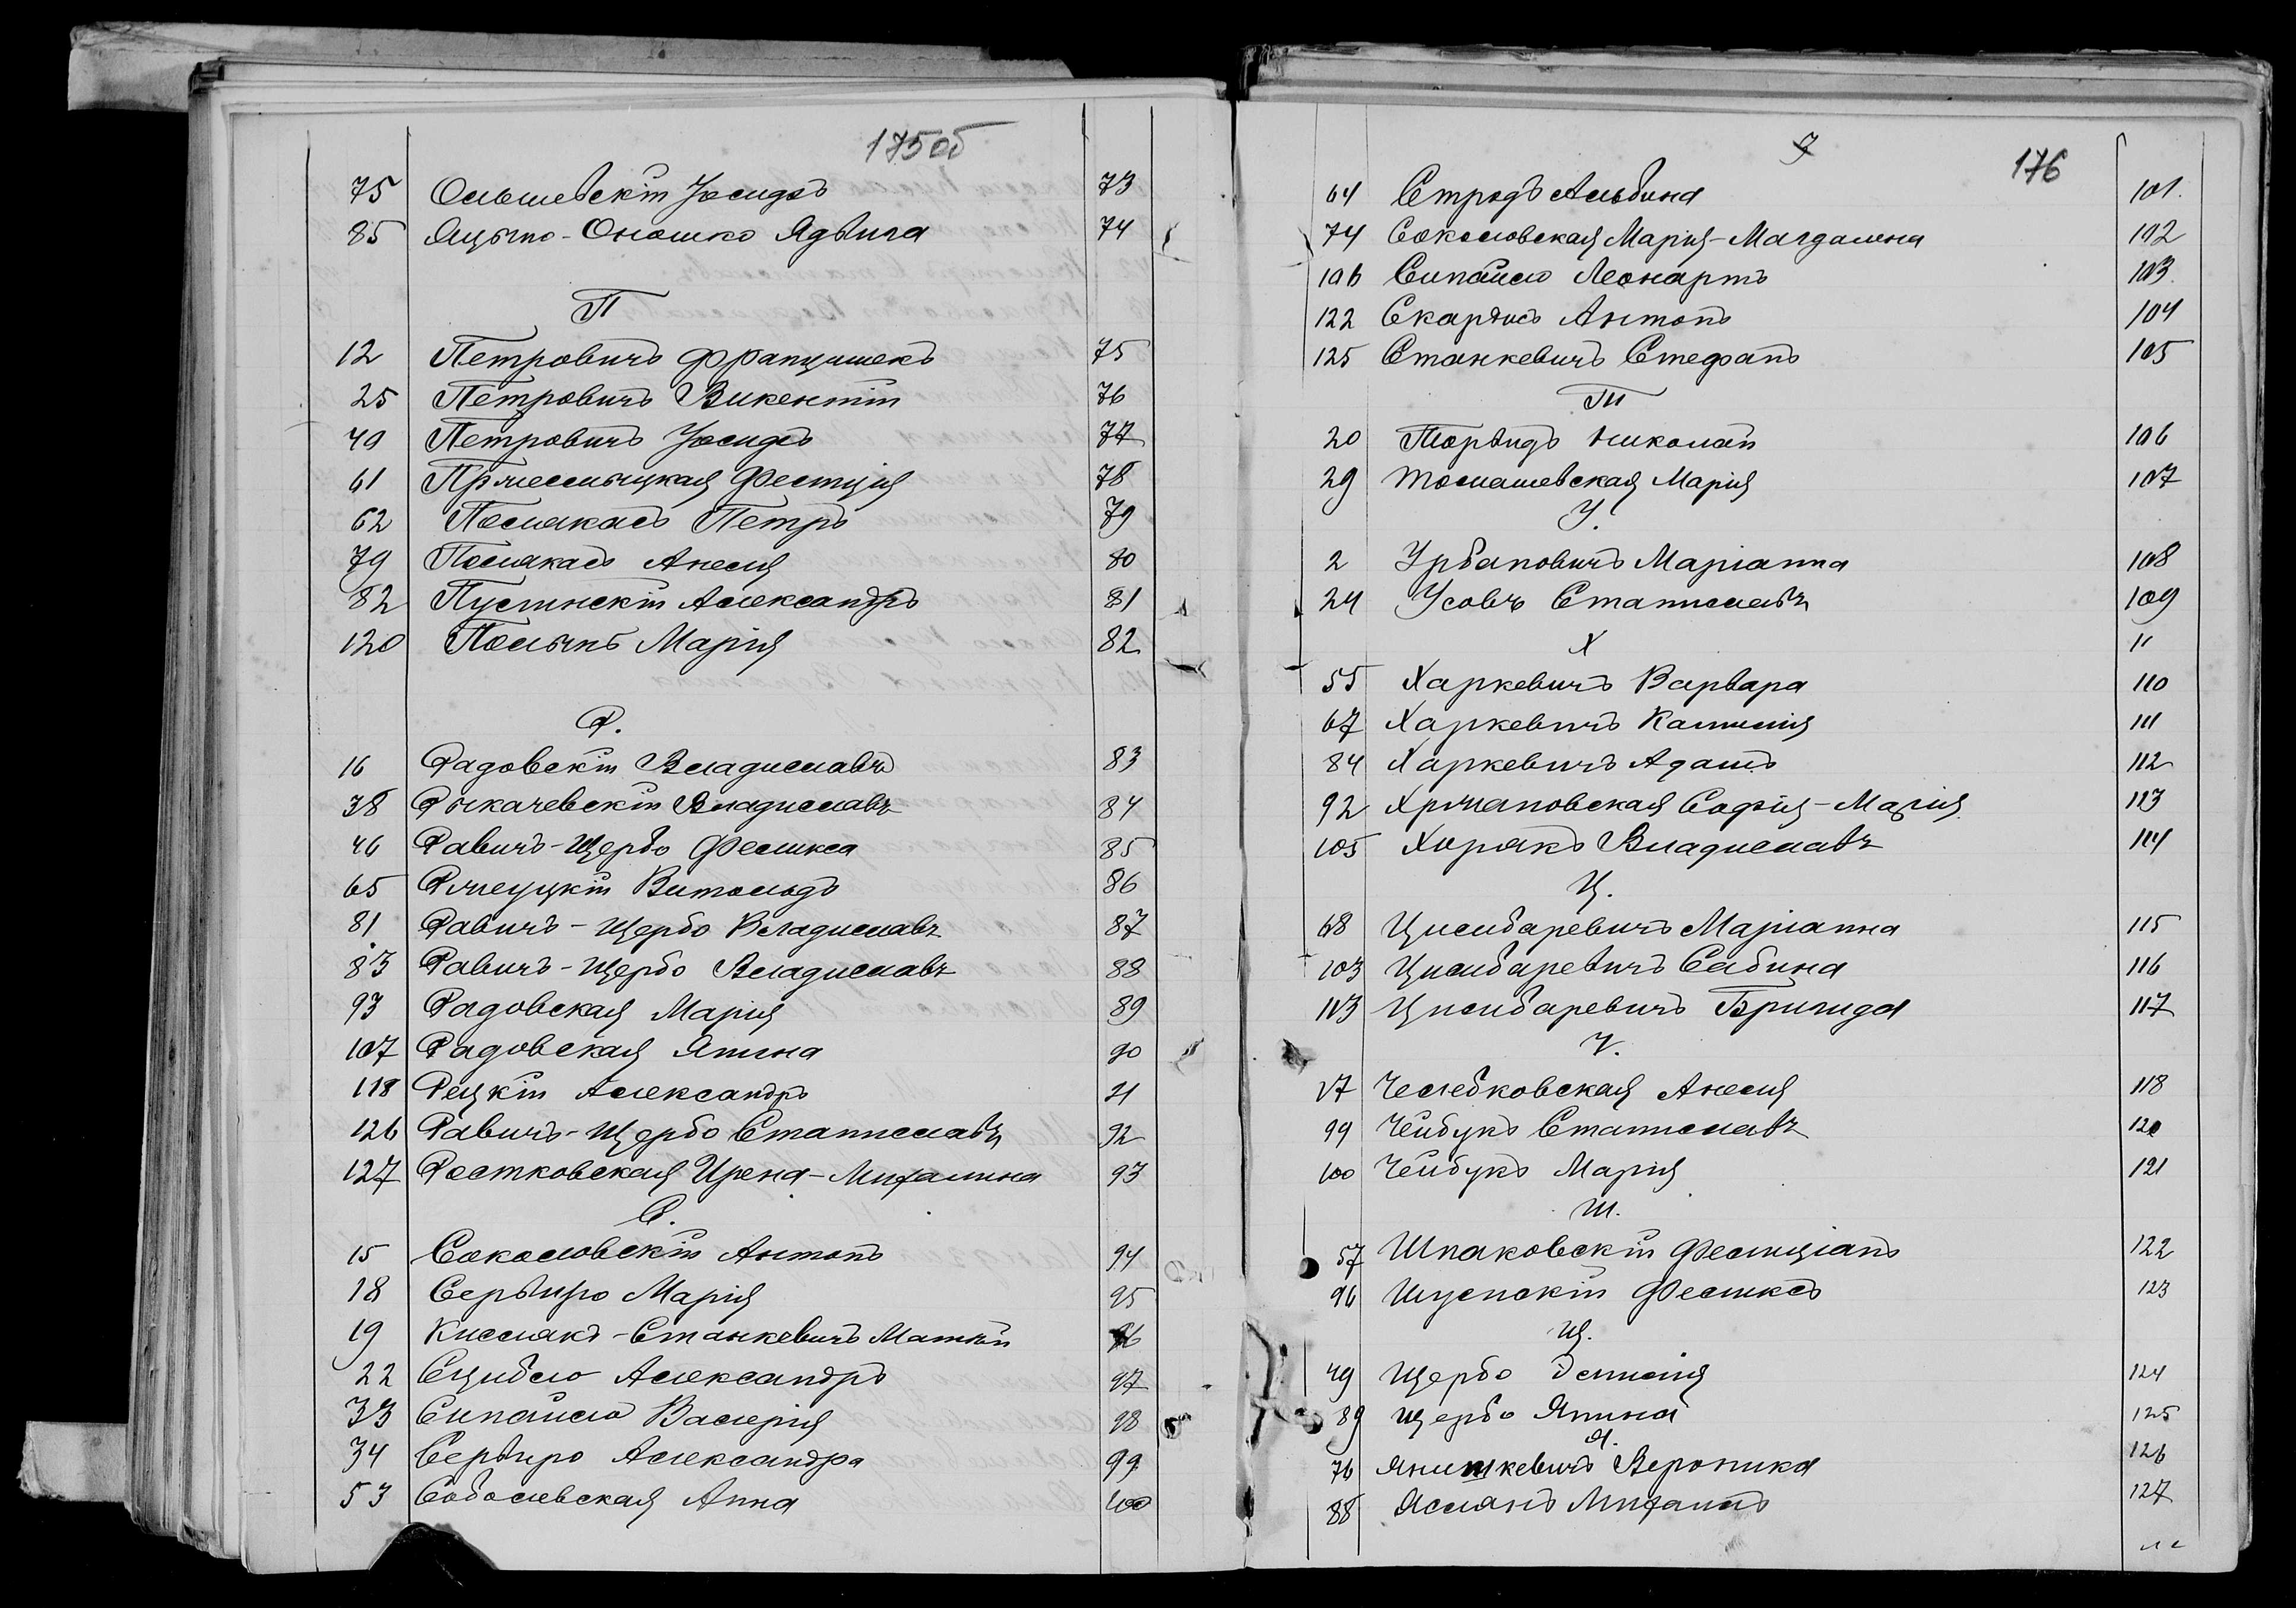 175об
75 Ольшевскій Іосифъ 73
85 Яцыно-Оношко Ядвига 74
П
12 Петровичъ Францишекъ 75
25 Петровичъ Викентій 76
40 Петровичъ Іосифъ 77
61 Пржесмыцкая Фелиція 78
62 Полякасъ Петръ 79
79 Полякасъ Анеля 80
82 Пуслинскій Александръ 81
120 Полынъ Марія 82
Р.
16 Радовскій Владиславъ 83
38 Рыкачевскій Владиславъ 84
46 Равичъ-Щербо Феликса 85
65 Ржеуцкій Витольдъ 86
81 Равичъ-Щербо Владиславъ 87
83 Равичъ-Щербо Владиславъ 88
93 Радовская Марія 89
107 Радовская Янина 90
118 Рецкій Александръ 91
126 Равичъ-Щербо Станиславъ 92
127 Ростковская Ирена-Михалина 93
С.
15 Соколовскій Антонъ 94
18 Сервиро Марія 95
19 Кислякъ-Станкевичъ Матвѣй 96
22 Сцибло Александръ 97
33 Сипайло Валерія 98
34 Сервиро Александра 99
53 Соболевская Анна 100
176
64 Стродъ Альбина 101.
74 Соколовская Марія-Магдалена 102
106 Сипайло Леонартъ 103.
122 Скардисъ Антонъ 104
125 Станкевичъ Стефанъ 105
Т
20 Торвидъ Николай 106
29 Томашевская Марія 107
У.
2 Урбановичъ Маріанна 108
24 Усовъ Станиславъ 109
Х "
55 Харкевичъ Варвара 110
67 Харкевичъ Камилія 111
84 Харкевичъ Адамъ 112
92 Хржановская Софія-Марія 113
105 Хорякъ Владиславъ 114
Ц.
68 Цимбаревичъ Маріанна 115
103 Цимбаревичъ Сабина 116
113 Цимбаревичъ Бригида 117
Ч.
17 Челебковская Анеля 118
99 Чейбукъ Станиславъ 120
100 Чейбукъ Марія 121
Ш.
57 Шпаковскій Фелиціанъ 122
96 Шуснскій Феликсъ 123
Щ.
49 Щербо Эмилія 124
89 Щербо Янина 125
Я.
76 Янишкевичъ Вероника 126
88 Ясманъ Михаилъ 127